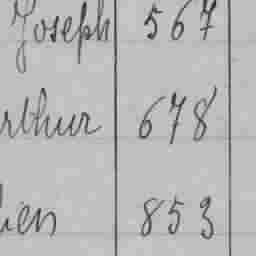 Joseph 567
rthur 678
ien 853